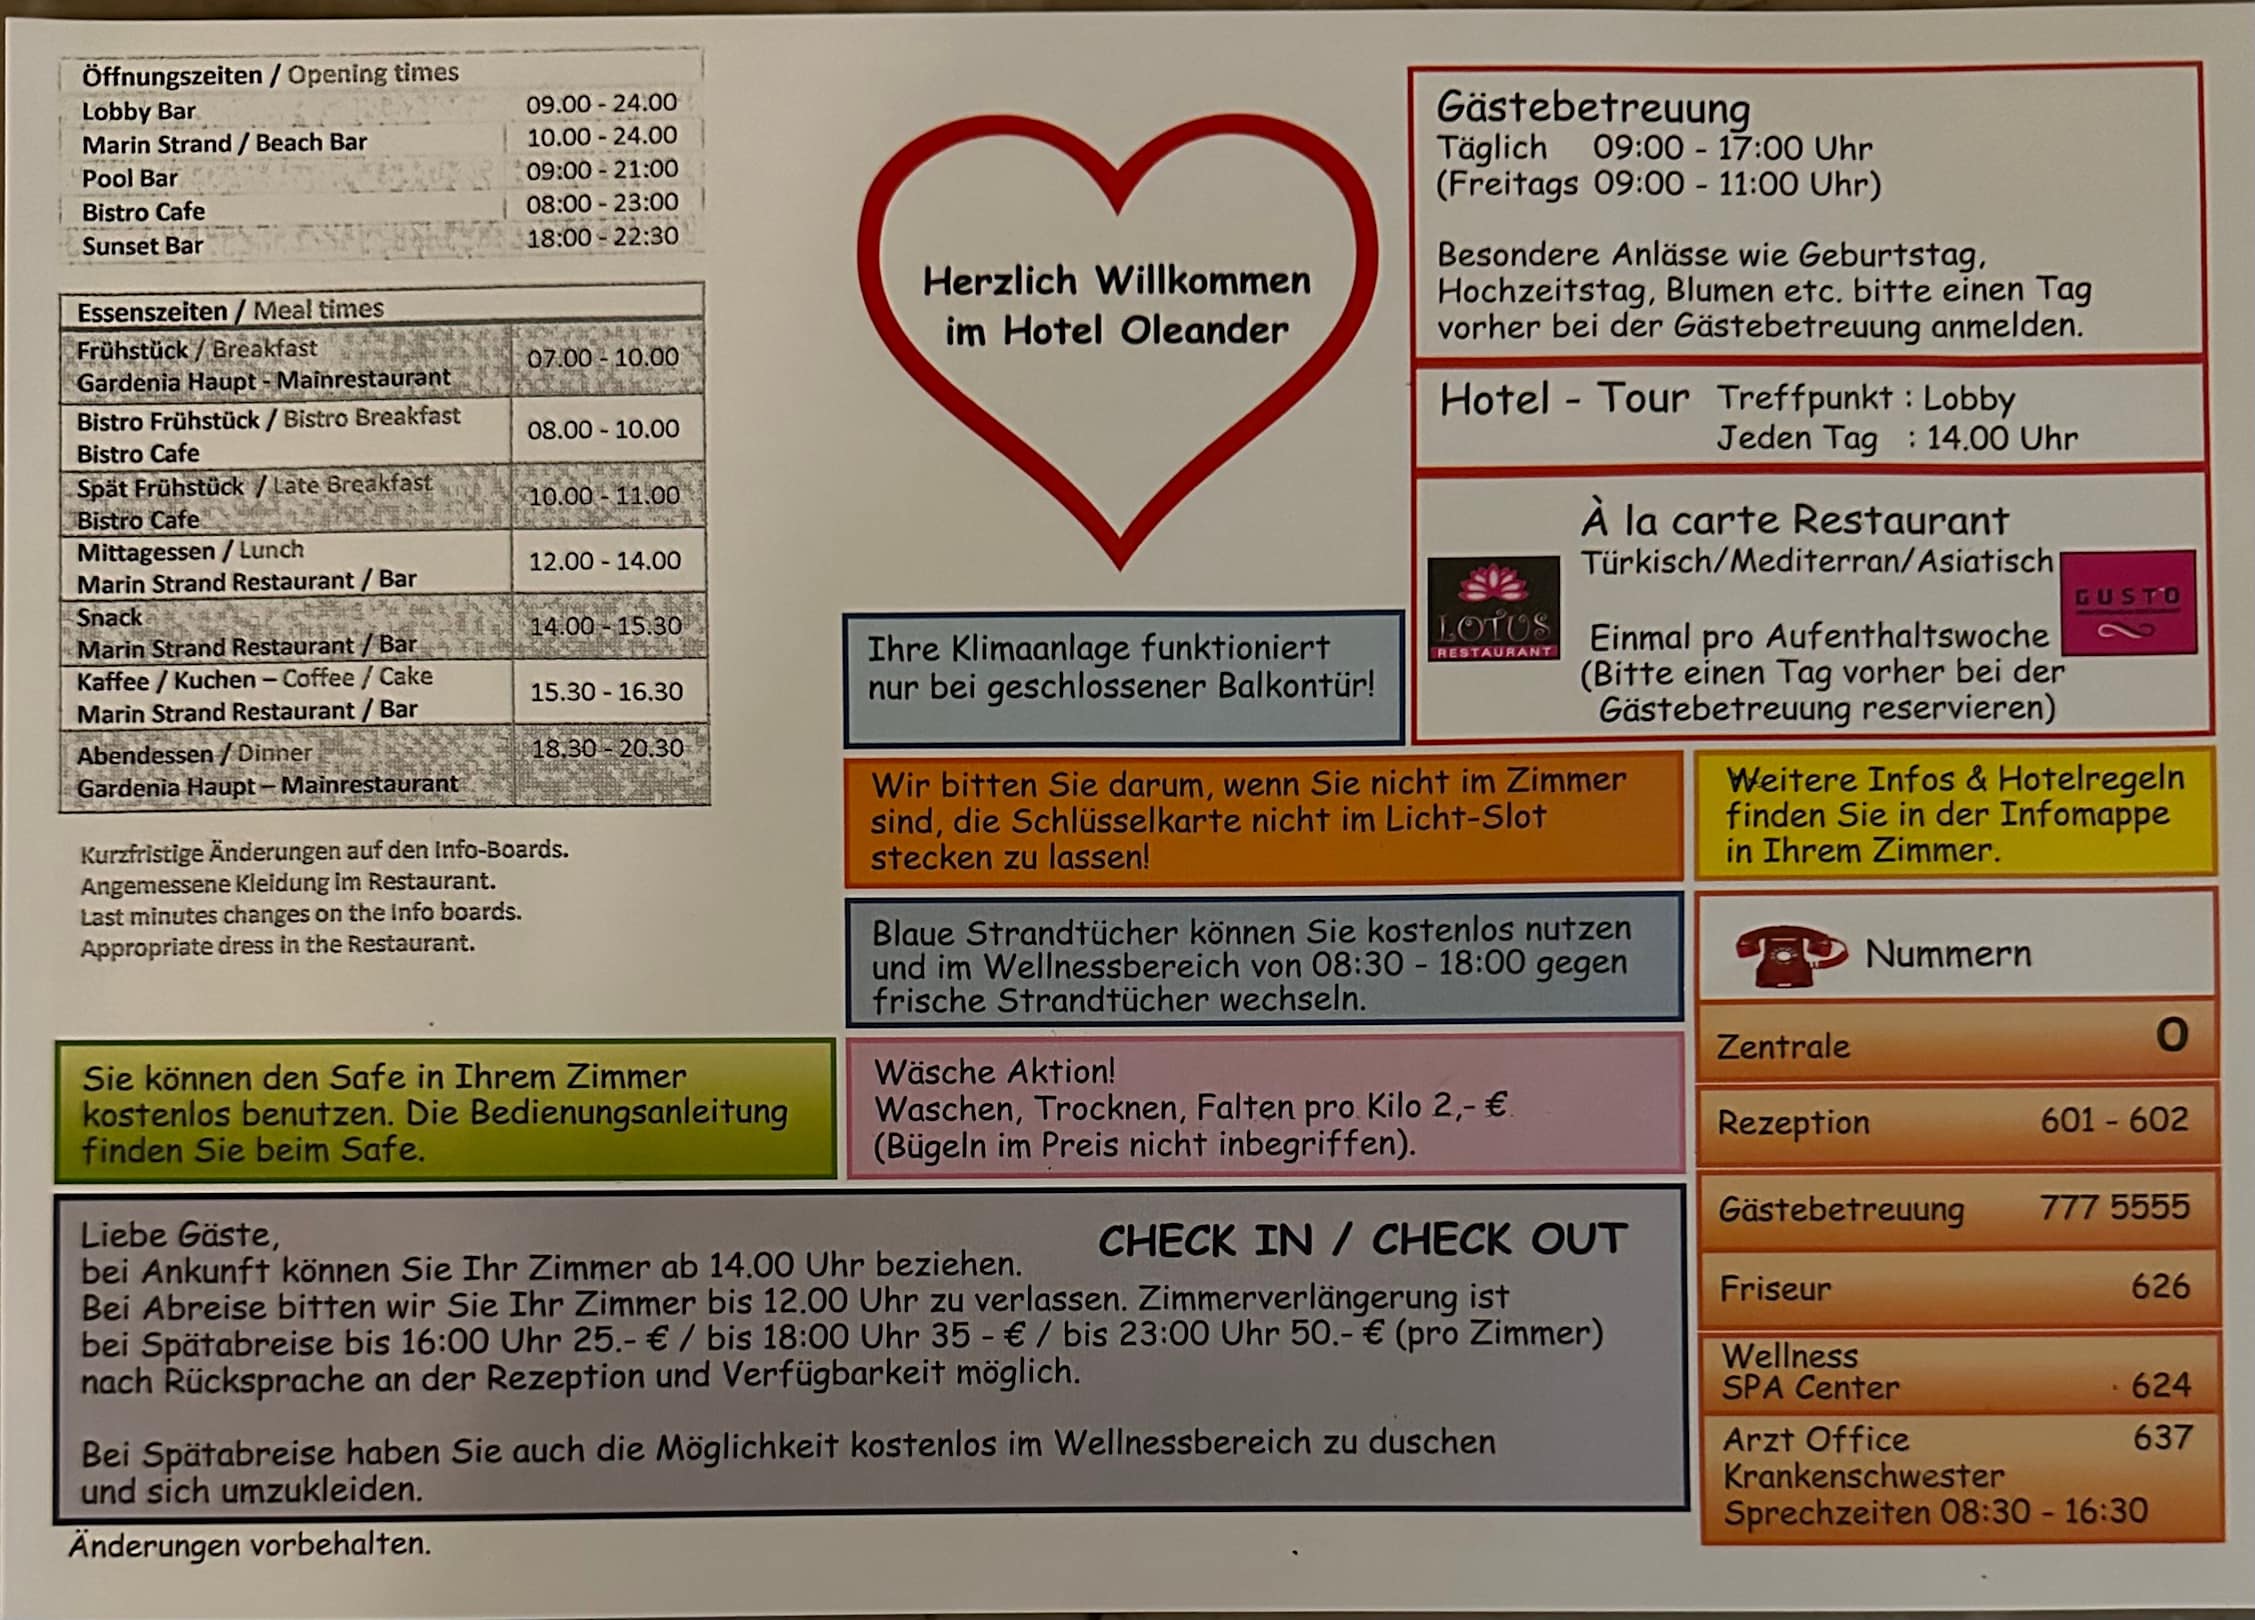 Öffnungszeiten / Opening times
Lobby Bar 09.00 - 24.00
Marin Strand / Beach Bar 10.00 - 24.00
Pool Bar 09:00 - 21:00
Bistro Cafe 08:00 - 23:00
Sunset Bar 18:00 - 22:30
Essenszeiten / Meal times
Frühstück / Breakfast
Gardenia Haupt - Mainrestaurant 07.00 - 10.00
Bistro Frühstück / Bistro Breakfast
Bistro Cafe 08.00 - 10.00
Spät Frühstück / Late Breakfast
Bistro Cafe 10.00 - 11.00
Mittagessen / Lunch
Marin Strand Restaurant / Bar 12.00 - 14.00
Snack
Marin Strand Restaurant / Bar 14.00 - 15.30
Kaffee / Kuchen – Coffee / Cake
Marin Strand Restaurant / Bar 15.30 - 16.30
Abendessen / Dinner 18.30 - 20.30
Gardenia Haupt – Mainrestaurant
Kurzfristige Änderungen auf den Info-Boards.
Angemessene Kleidung im Restaurant.
Last minutes changes on the Info boards.
Appropriate dress in the Restaurant.
Herzlich Willkommen
im Hotel Oleander
Gästebetreuung
Täglich 09:00 - 17:00 Uhr
(Freitags 09:00 - 11:00 Uhr)
Besondere Anlässe wie Geburtstag,
Hochzeitstag, Blumen etc. bitte einen Tag
vorher bei der Gästebetreuung anmelden.
Hotel - Tour Treffpunkt : Lobby
Jeden Tag : 14.00 Uhr
À la carte Restaurant
Türkisch/Mediterran/Asiatisch
LOTUS
RESTAURANT
GUSTO
Einmal pro Aufenthaltswoche
(Bitte einen Tag vorher bei der
Gästebetreuung reservieren)
Ihre Klimaanlage funktioniert
nur bei geschlossener Balkontür!
Wir bitten Sie darum, wenn Sie nicht im Zimmer
sind, die Schlüsselkarte nicht im Licht-Slot
stecken zu lassen!
Weitere Infos & Hotelregeln
finden Sie in der Infomappe
in Ihrem Zimmer.
Blaue Strandtücher können Sie kostenlos nutzen
und im Wellnessbereich von 08:30 - 18:00 gegen
frische Strandtücher wechseln.
Sie können den Safe in Ihrem Zimmer
kostenlos benutzen. Die Bedienungsanleitung
finden Sie beim Safe.
Wäsche Aktion!
Waschen, Trocknen, Falten pro Kilo 2,- €.
(Bügeln im Preis nicht inbegriffen).
Nummern
Zentrale 0
Rezeption 601 - 602
Gästebetreuung 777 5555
Friseur 626
Wellness
SPA Center 624
Arzt Office 637
Krankenschwester
Sprechzeiten 08:30 - 16:30
Liebe Gäste,
CHECK IN / CHECK OUT
bei Ankunft können Sie Ihr Zimmer ab 14.00 Uhr beziehen.
Bei Abreise bitten wir Sie Ihr Zimmer bis 12.00 Uhr zu verlassen. Zimmerverlängerung ist
bei Spätabreise bis 16:00 Uhr 25.- € / bis 18:00 Uhr 35 - € / bis 23:00 Uhr 50.- € (pro Zimmer)
nach Rücksprache an der Rezeption und Verfügbarkeit möglich.
Bei Spätabreise haben Sie auch die Möglichkeit kostenlos im Wellnessbereich zu duschen
und sich umzukleiden.
Änderungen vorbehalten.